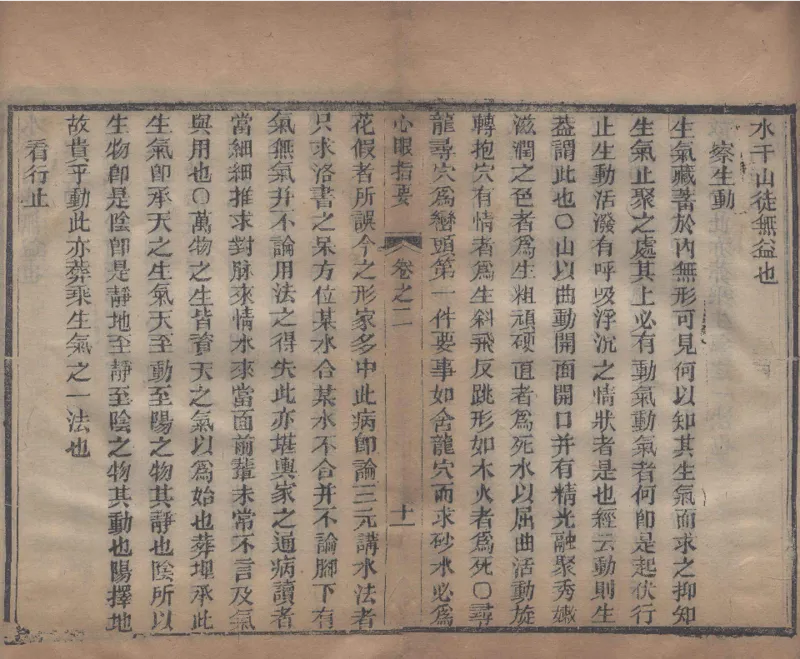 水干山徒無益也
察生動
生氣藏蓄於內無形可見何以知其生氣而求之抑知
生氣止聚之處其上必有動氣動氣者何卽是起伏行
止生動活潑有呼吸浮沉之情狀者是也經云動則生
葢謂此也〇山以曲動開面開口并有精光融聚秀嫩
滋潤之色者爲生粗頑硬直者爲死水以屈曲活動旋
轉抱穴有情者爲生斜飛反跳形如木火者爲死〇尋
龍尋穴爲巒頭第一件要事如舍龍穴而求砂水必爲
心眼指要
卷之二
十一
花假者所誤今之形家多中此病卽論三元講水法者
只求洛書之呆方位某水合某水不合并不論腳下有
氣無氣并不論用法之得失此亦堪輿家之通病讀者
當細細推求對脉來情水來當面前輩未常不言及氣
與用也〇萬物之生皆資天之氣以爲始也葬埋承此
生氣卽承天之生氣天至動至陽之物其靜也陰所以
生物卽是陰卽是靜地至靜至陰之物其動也陽擇地
故貴乎動此亦葬乘生氣之一法也
看行止